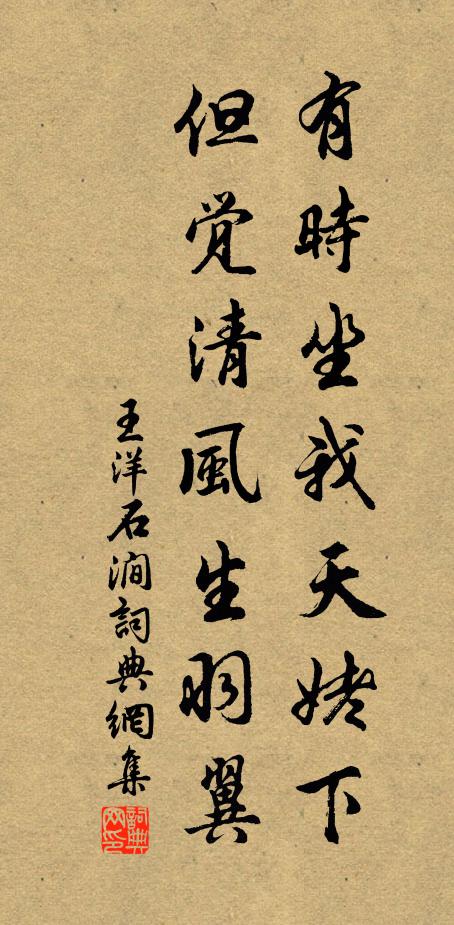 有時坐我天姥下
但覺清風生羽翼
王洋石澗詞典網集
詞典網印